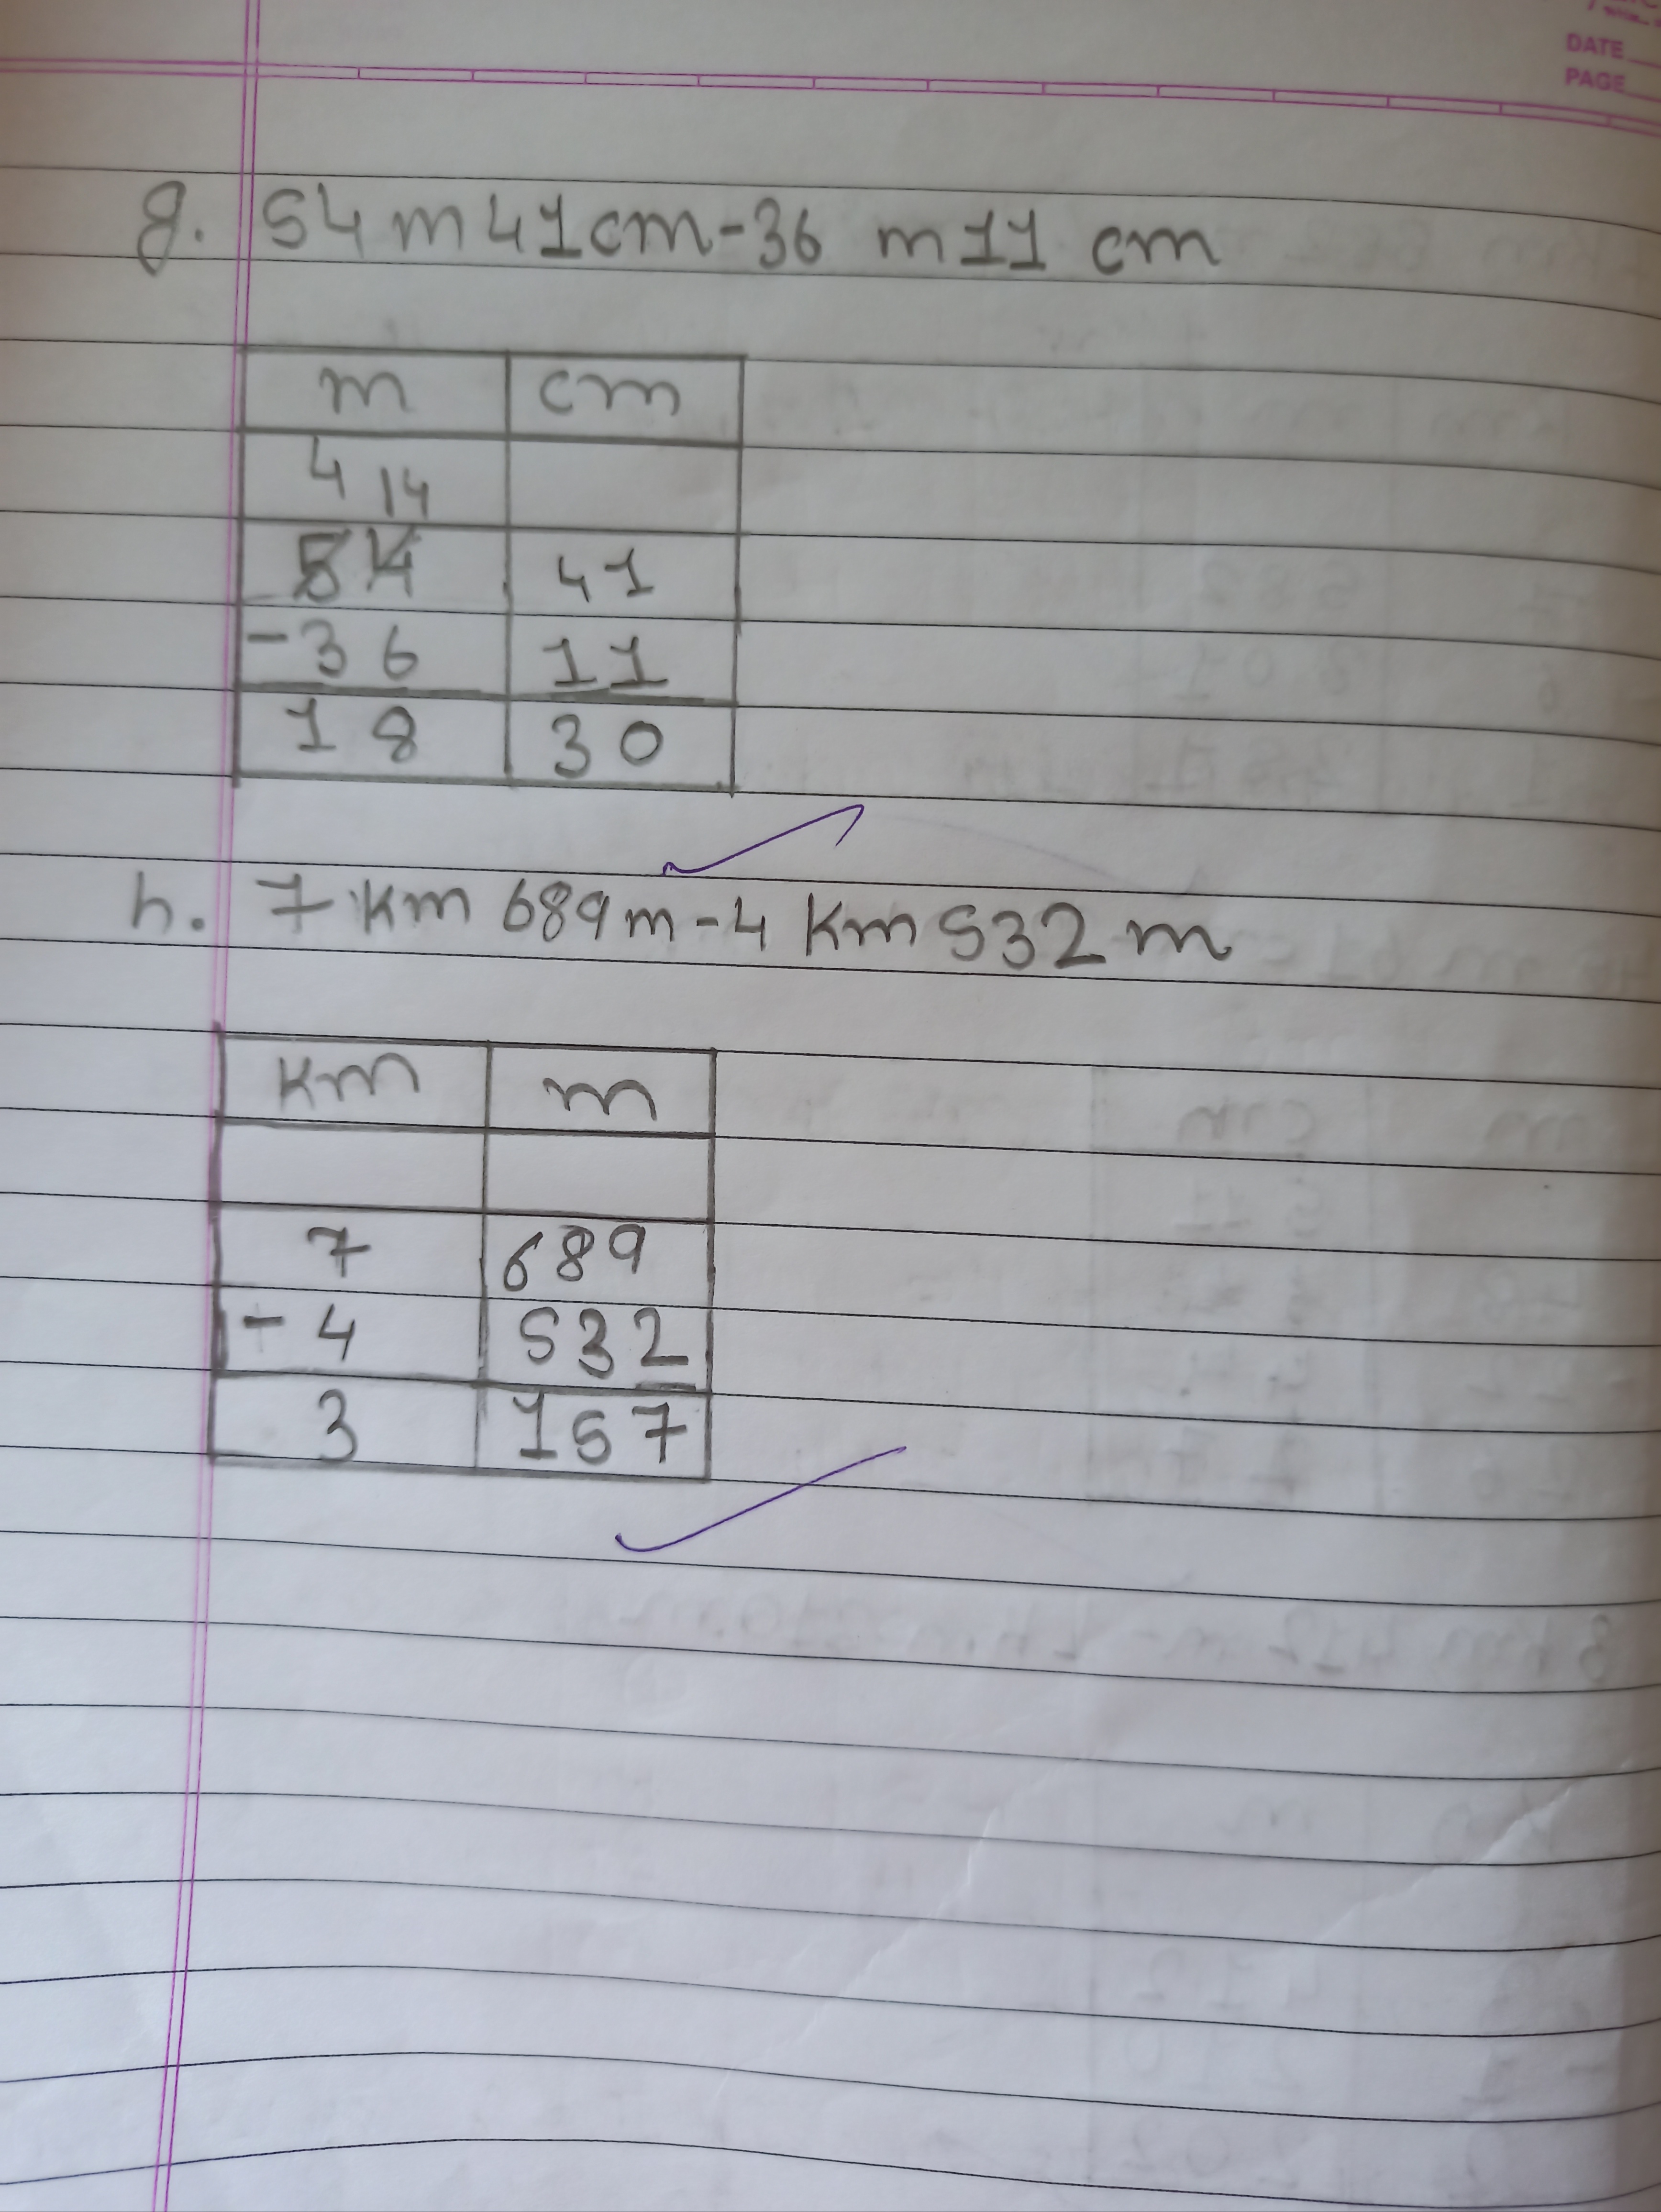 DATE
PAGE
g. 54 m 41 cm - 36 m 11 cm
m cm
4 14
54 41
- 36 11
18 30
h. 7 Km 689 m - 4 Km 532 m
Km m
7 689
- 4 532
3 157